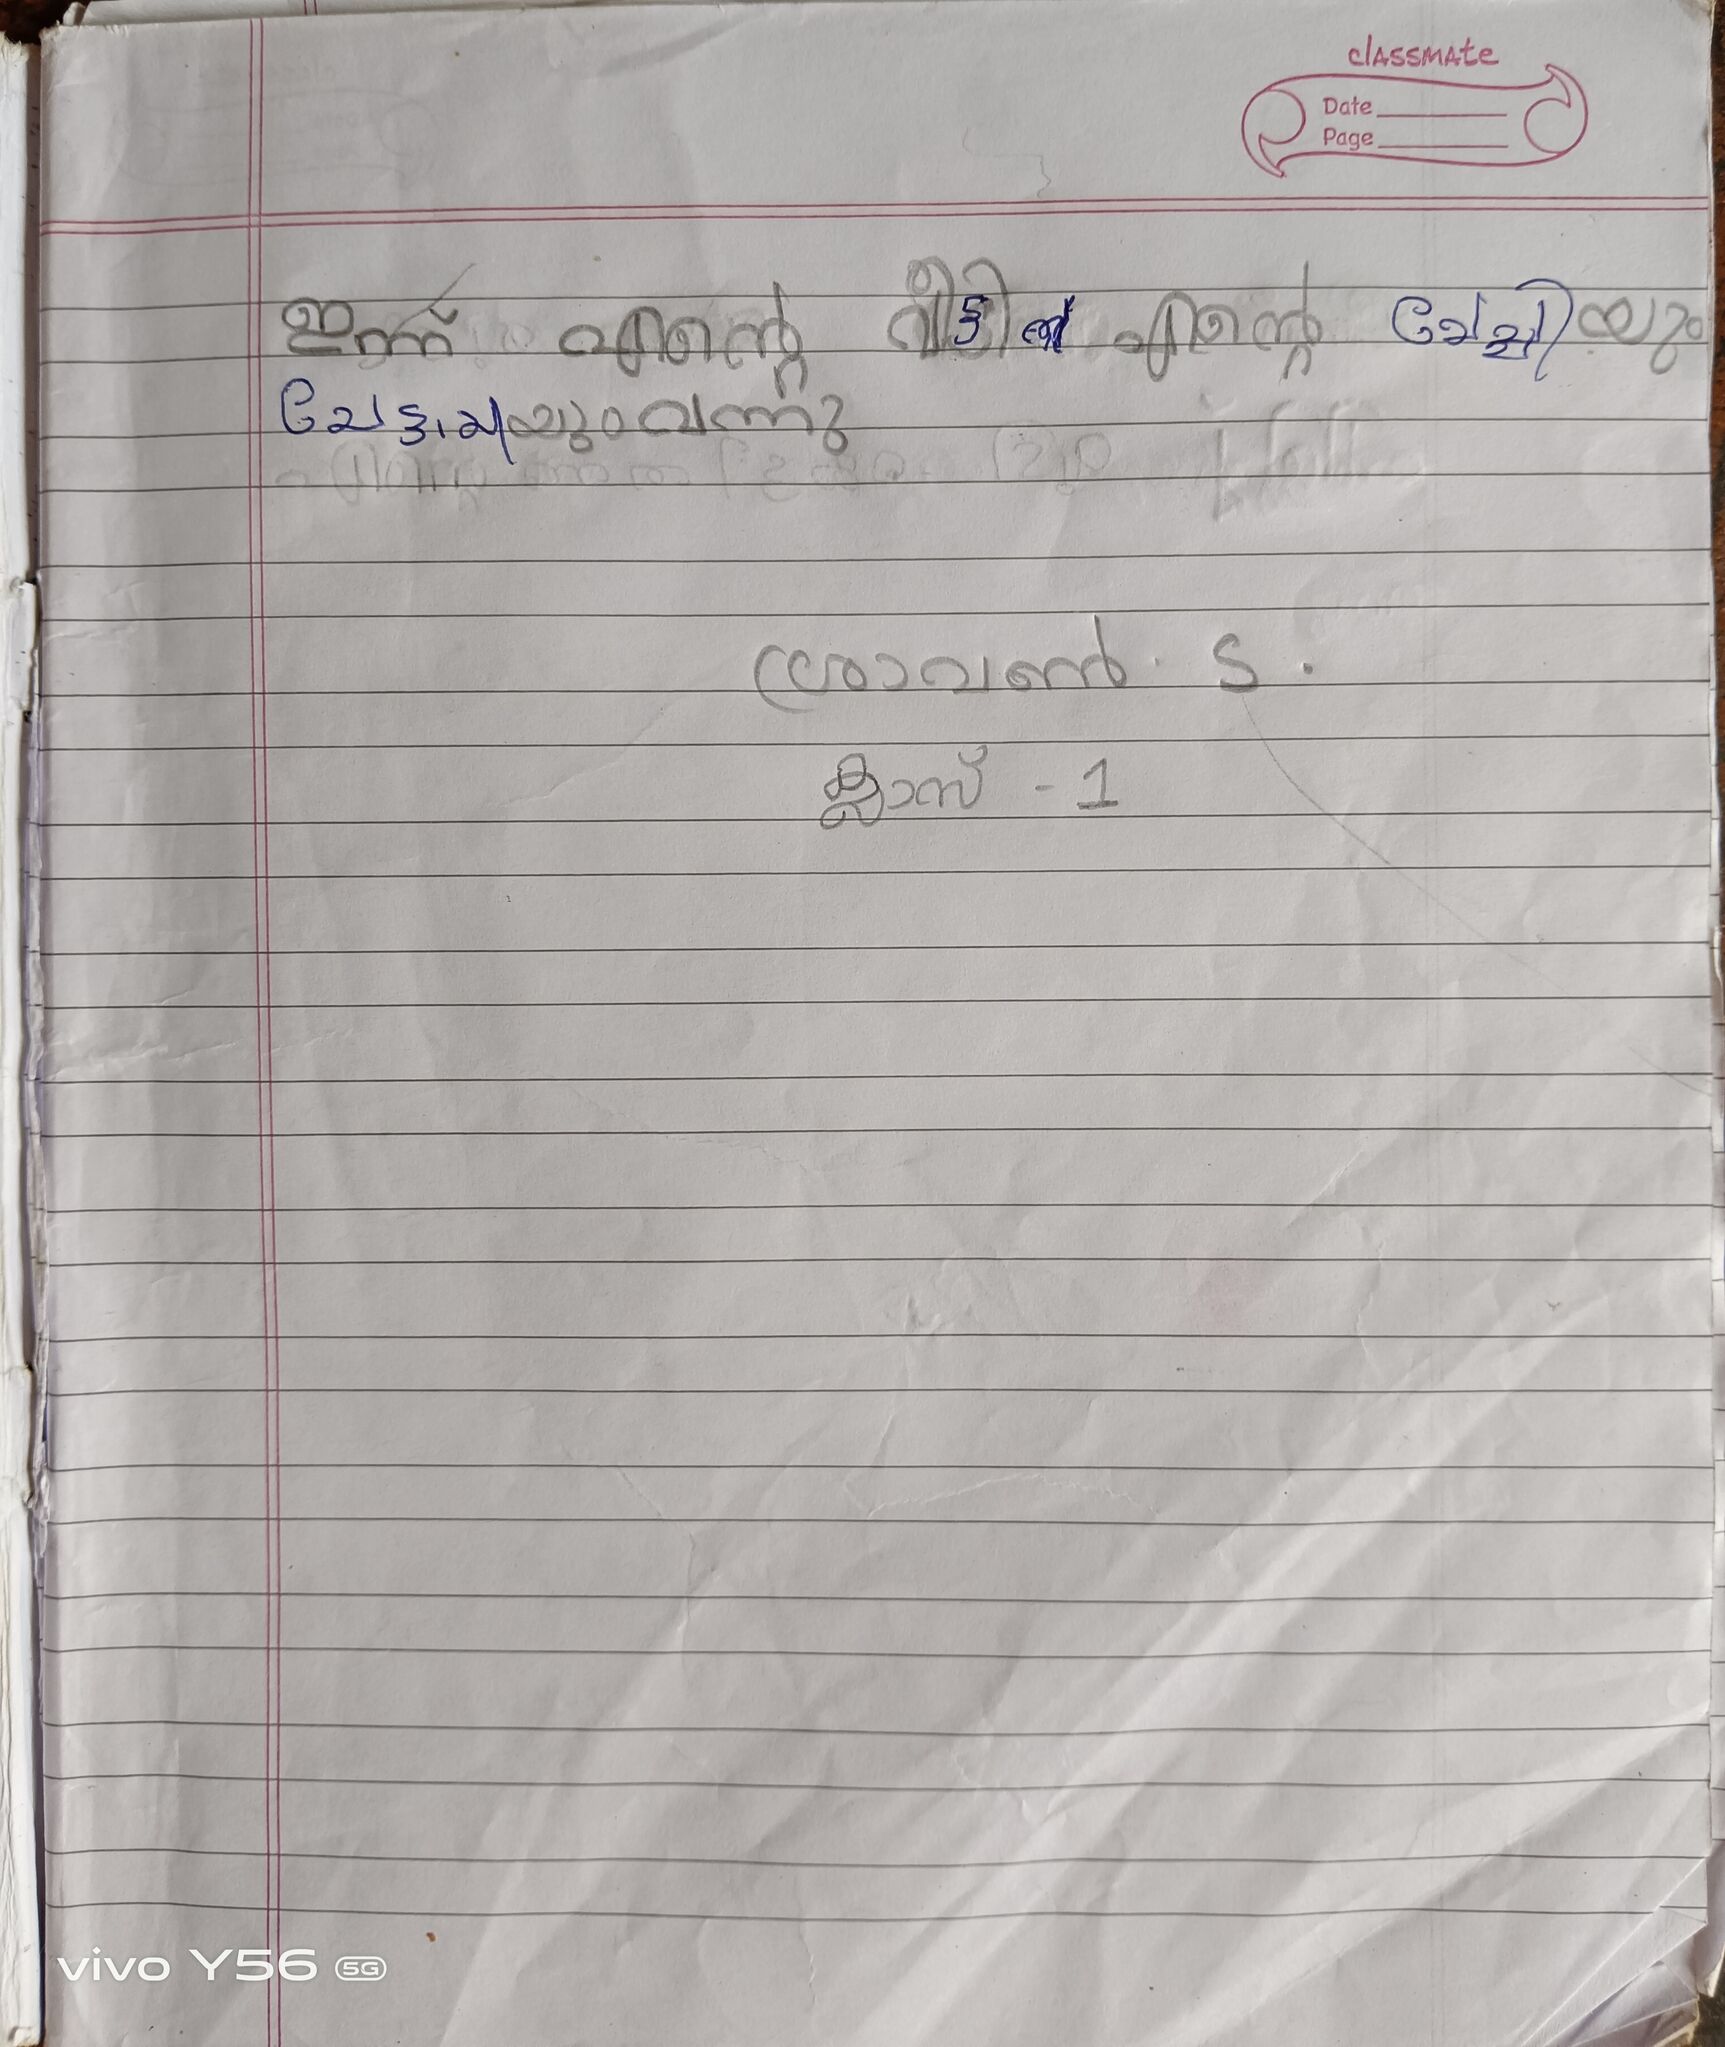 classmate
Date
Page
ഇന്ന് എന്റെ വീട്ടിൽ എന്റെ ചേച്ചിയും
ചേട്ടച്ചയുംവന്നു
ശ്രാവൺ. S.
ക്ലാസ് - 1
vivo Y56 5G